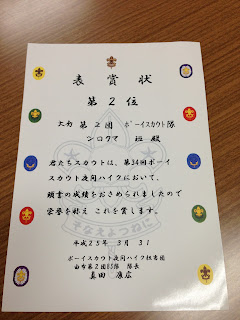 表賞状
第2位
大和 第2団 ボーイスカウト隊
シロクマ 班 殿
君たちスカウトは、第34回ボーイ
スカウト夜間ハイクにおいて、
頭書の成績をおさめられましたので
栄誉を称え これを賞します。
そなえよつねに
平成25年 3月 31
ボーイスカウト夜間ハイク担当団
大和第2団BS隊 隊長
真田 康広